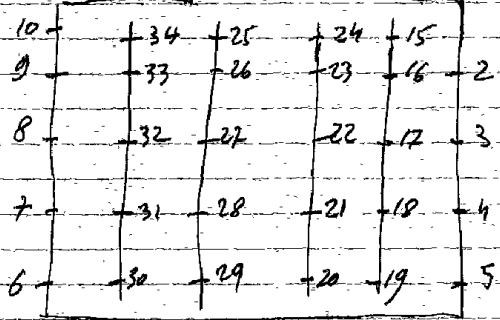 10 34 25 24 15
9 33 26 23 16 2
8 32 27 22 17 3
7 31 28 21 18 4
6 30 29 20 19 5